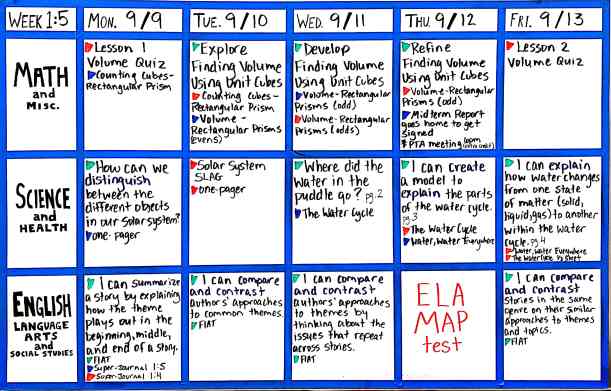 WEEK 1:5
MON. 9/9
TUE. 9/10
WED. 9/11
THU. 9/12
FRI. 9/13
MATH
and
MISC.
Lesson 1
Volume Quiz
Counting Cubes-
Rectangular Prism
Explore
Finding Volume
Using Unit Cubes
Counting Cubes-
Rectangular Prism
Volume -
Rectangular Prisms
(evens)
Develop
Finding Volume
Using Unit Cubes
Volume-Rectangular
Prisms (odd)
Volume-Rectangular
Prisms (odds)
Refine
Finding Volume
Using Unit Cubes
Volume-Rectangular
Prisms (odd)
Midterm Report
goes home to get
signed
PTA meeting 6pm
Lesson 2
Volume Quiz
SCIENCE
and
HEALTH
How can we
distinguish
between the
different objects
in our solar system?
one-pager
Solar System
SLAG
one-pager
Where did the
water in the
puddle go? pg.2
The Water Cycle
I can create
a model to
explain the parts
of the water cycle.
pg.3
The Water Cycle
Water, Water Everywhere
I can explain
how water changes
from one state
of matter (solid,
liquid, gas) to another
within the water
cycle. pg.4
Water, Water Everywhere
The Water Cycle
ENGLISH
LANGUAGE
ARTS
and
SOCIAL STUDIES
I can summarize
a story by explaining
how the theme
plays out in the
beginning, middle,
and end of a story.
FIAT
Super-Journal 1:5
Super-Journal 1:4
I can compare
and contrast
authors' approaches
to common themes.
FIAT
I can compare
and contrast
authors' approaches
to themes by
thinking about the
issues that repeat
across stories.
FIAT
ELA
MAP
test
I can compare
and contrast
stories in the same
genre on their similar
approaches to themes
and topics.
FIAT